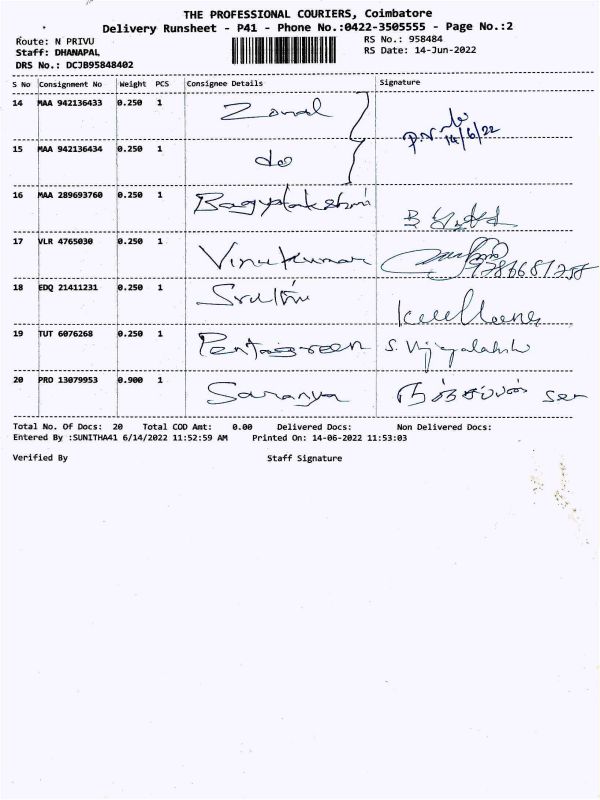 THE PROFESSIONAL COURIERS, Coimbatore
Delivery Runsheet - P41 - Phone No.:0422-3505555 - Page No.:2
Route: N PRIVU RS No.: 958484
Staff: DHANAPAL RS Date: 14-Jun-2022
DRS No.: DCJB95848402
S No Consignment No Weight PCS Consignee Details Signature
14 MAA 942136433 0.250 1 Zonal
14/6/22
15 MAA 942136434 0.250 1 do
16 MAA 289693760 0.250 1 Bagyalakshmi
17 VLR 4765030 0.250 1 Vinukumar
18 EDQ 21411231 0.250 1 Sruthi
19 TUT 6076268 0.250 1 Pentagreen S. Vijayalakshi
20 PRO 13079953 0.900 1 Saranya
Total No. Of Docs: 20 Total COD Amt: 0.00 Delivered Docs: Non Delivered Docs:
Entered By :SUNITHA41 6/14/2022 11:52:59 AM Printed On: 14-06-2022 11:53:03
Verified By Staff Signature